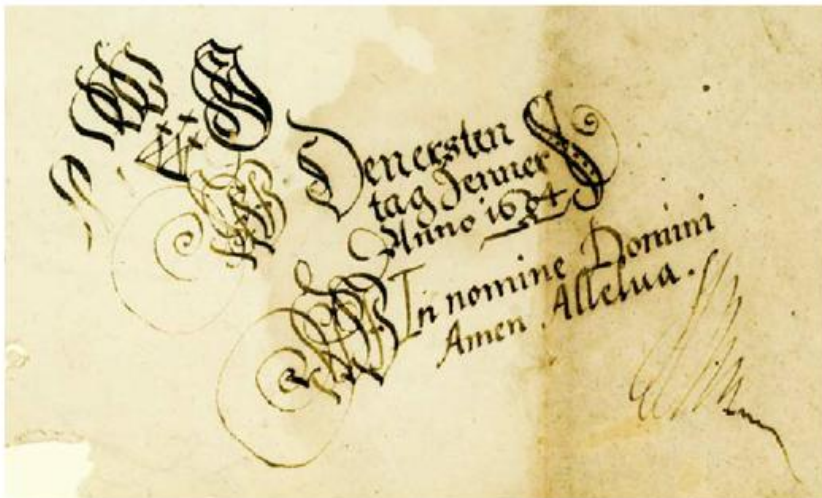 Den ersten
tag Jenner
Anno 1684
In nomine Domini
Amen Allelua.